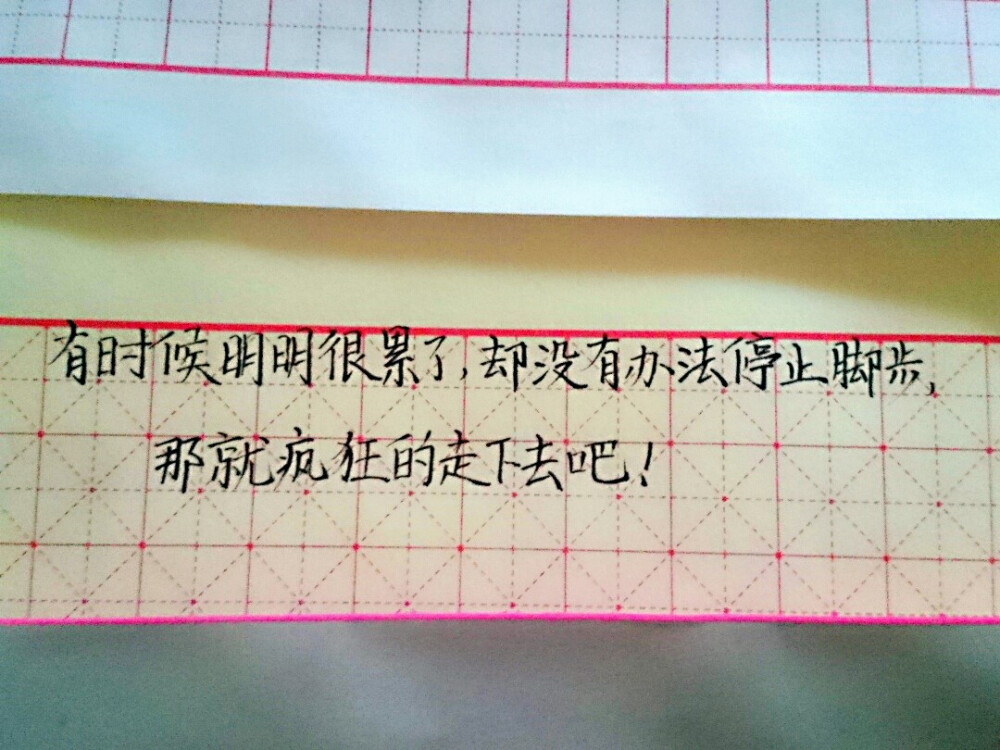 有时候明明很累了,却没有办法停止脚步,
那就疯狂的走下去吧!